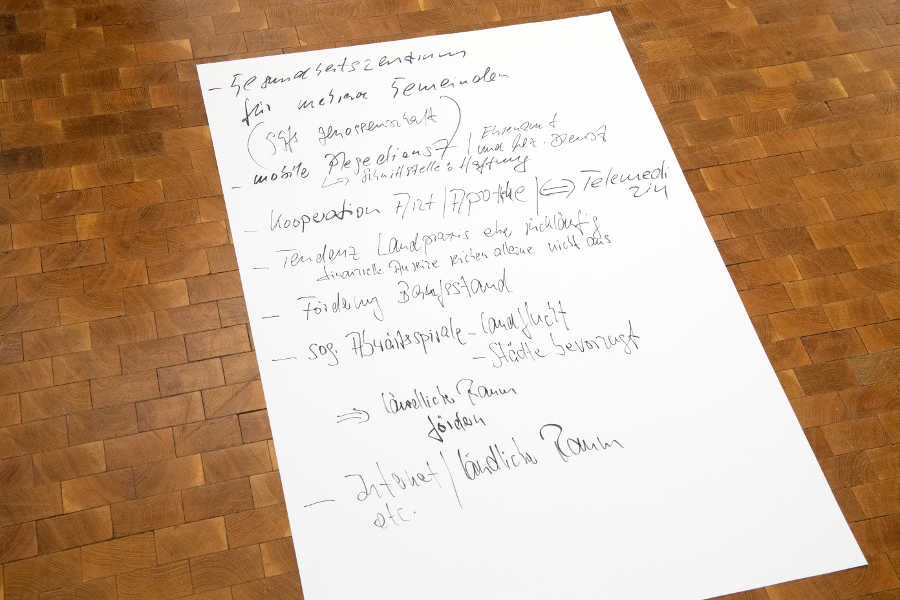 - Gesundheitszentrum
für mehrere Gemeinden
(Ggfs Genossenschaft)
- mobile Pflegedienst / Ehrenamt
und hlz. Dienst
↳ Schnittstelle o Haftung
- Kooperation Arzt / Apotheke / ⇔ Telemedi
zin
- Tendenz Landpraxis eher rückläufig
finanzielle Anreize reichen alleine nicht aus
- Förderung Berufsstand
- sog. Abwärtsspirale - Landflucht
- Städte bevorzugt
⇒ ländlicher Raum
fördern
- Internet / ländlicher Raum
etc.